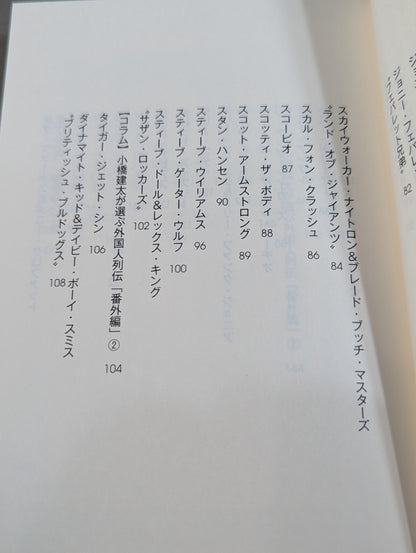 ジョニー・フェバ
“フェバレット兄弟” 82
スカイウォーカー・ナイトロン&ブレード・ブッチ・マスターズ
“ランド・オブ・ジャイアンツ” 84
スカル・フォン・クラッシュ 86
スコーピオ 87
スコッティ・ザ・ボディ 88
スコット・アームストロング 89
スタン・ハンセン 90
スティーブ・ウイリアムス 96
スティーブ・ゲター・ウルフ 100
スティーブ・ドール&レックス・キング
“サザン・ロッカーズ” 102
【コラム】小橋建太が選ぶ外国人列伝「番外編」② 104
タイガー・ジェット・シン 106
ダイナマイト・キッド&デイビー・ボーイ・スミス
“ブリティッシュ・ブルドッグス” 108